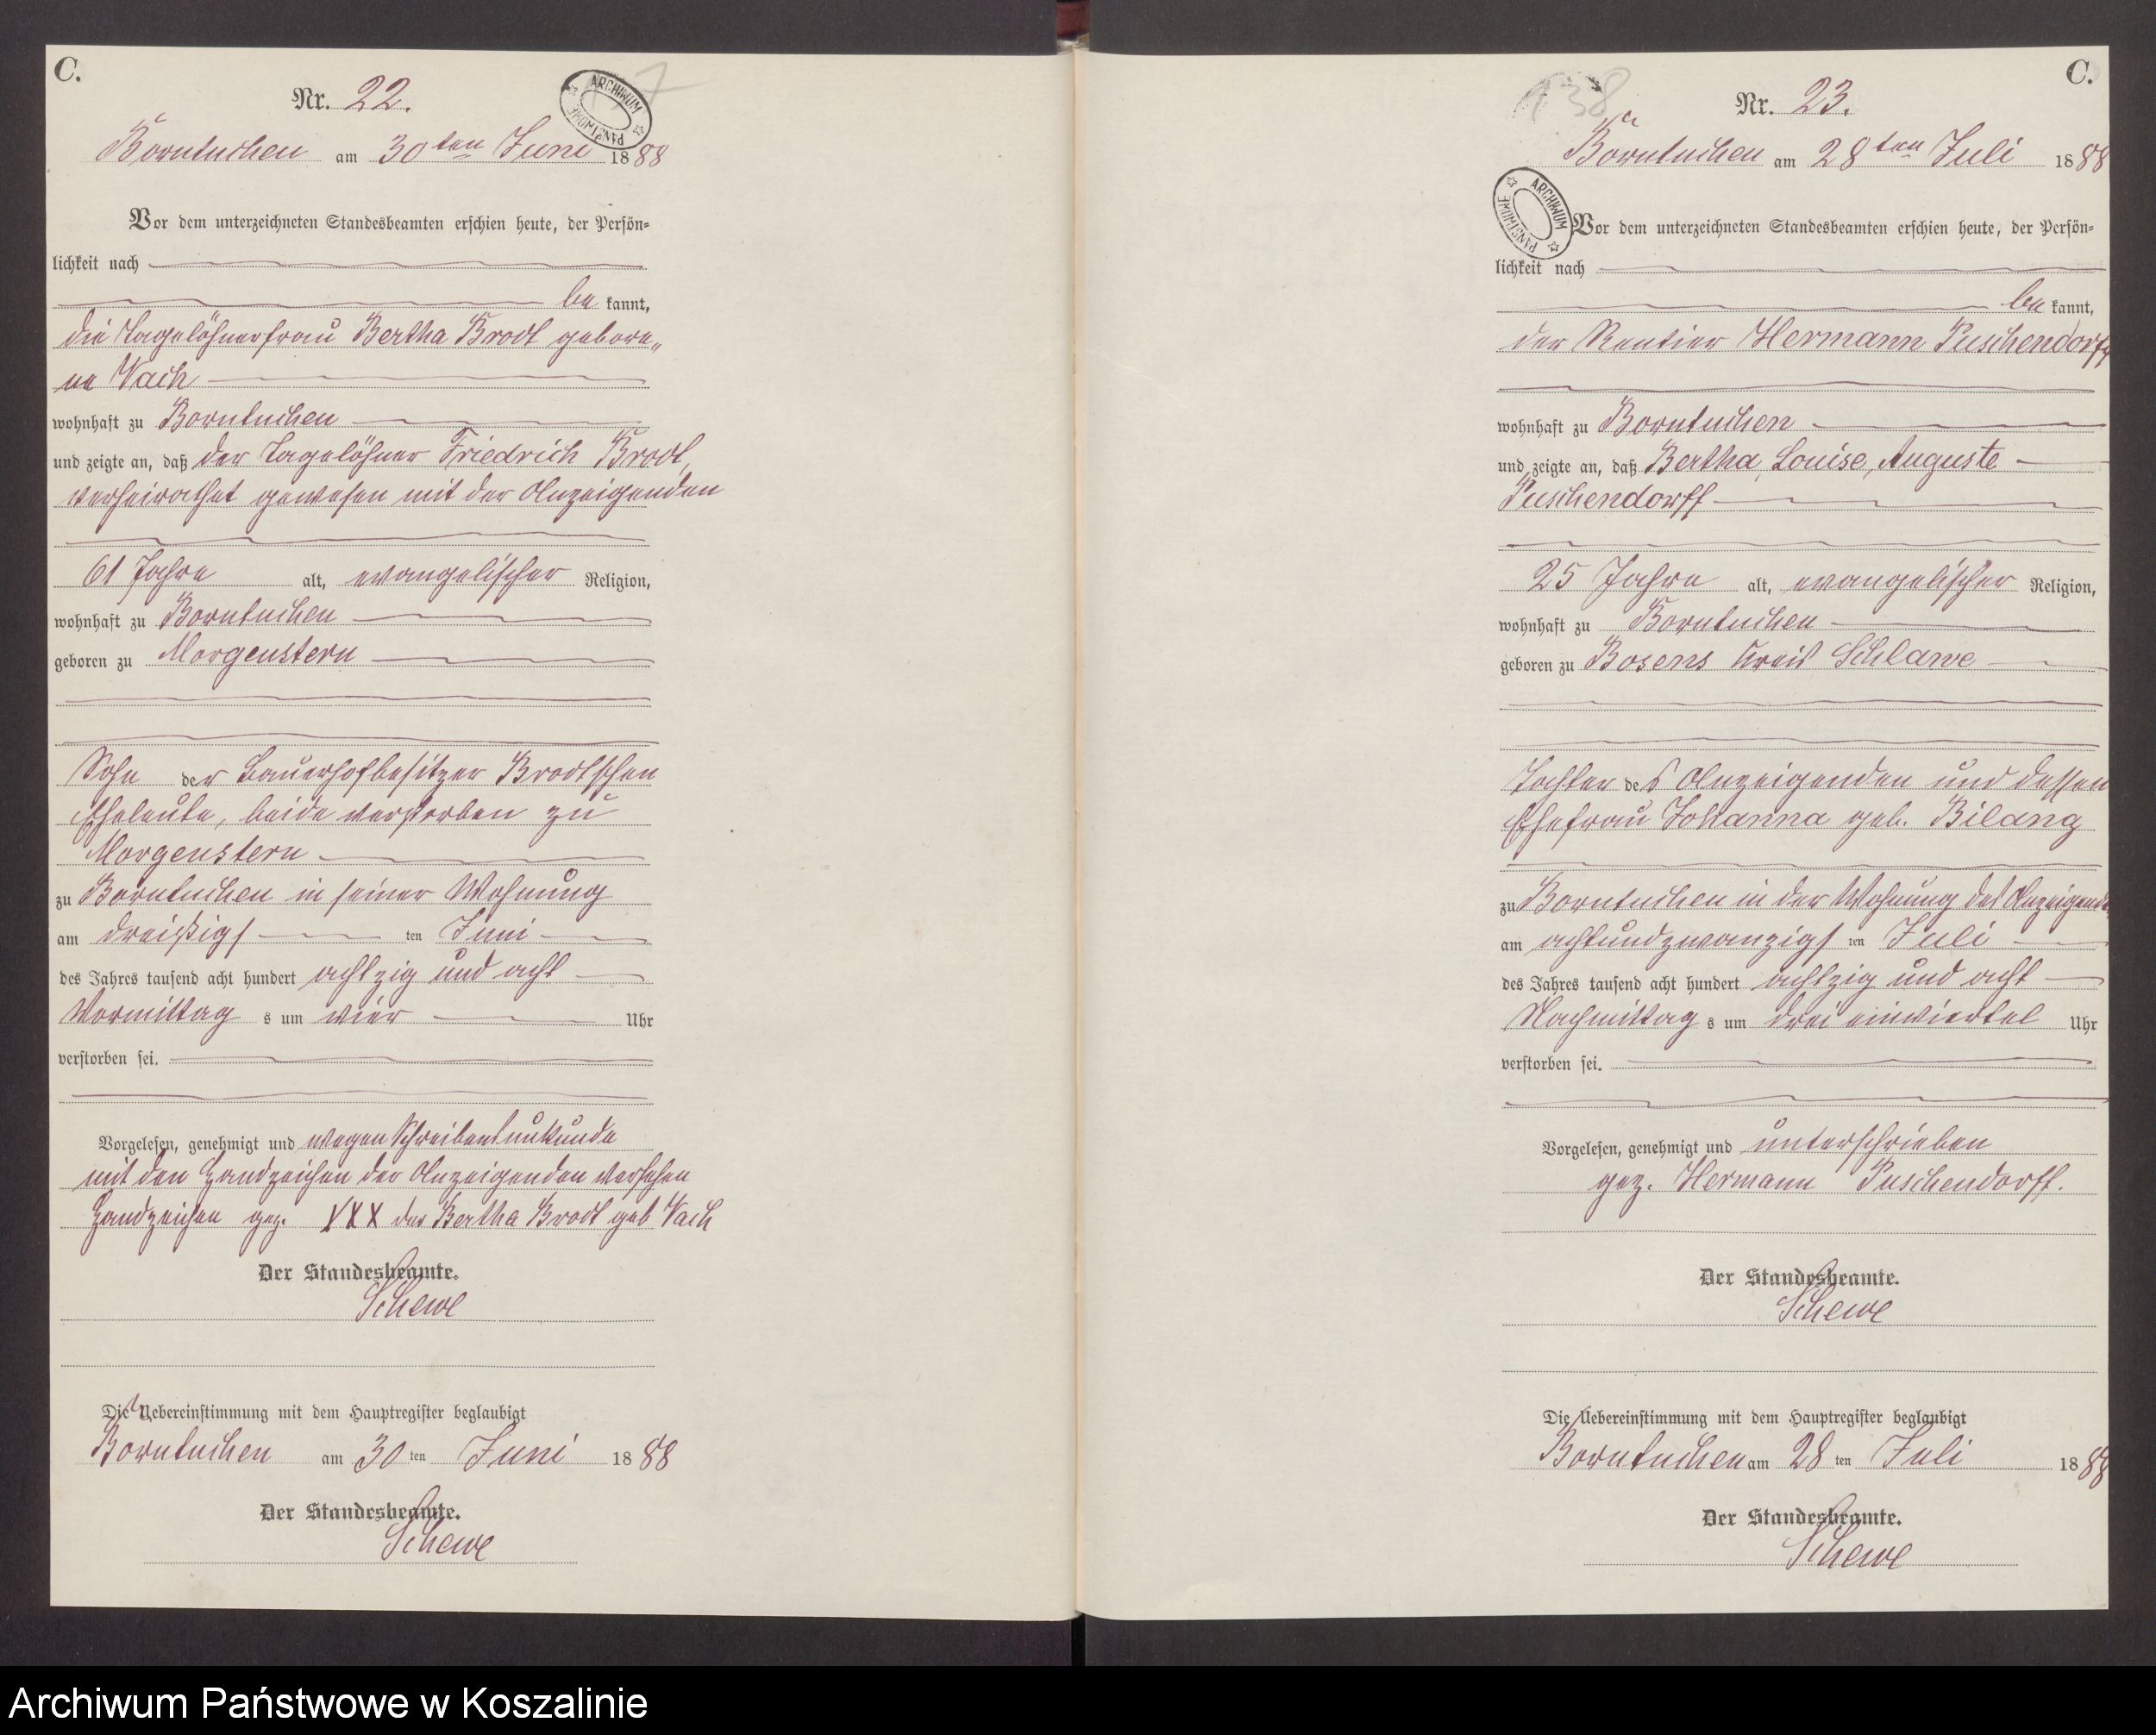 C.
Nr. 22.
ARCHIWUM PAŃSTWOWE
Borntuchen am 30ten Juni 1888
Vor dem unterzeichneten Standesbeamten erschien heute, der Persön-
lichkeit nach
be kannt,
die Tagelöhnerfrau Bertha Brodt gebore„
ne Vach
wohnhaft zu Borntuchen
und zeigte an, daß der Tagelöhner Friedrich Brodt,
verheirathet gewesen mit der Anzeigenden
61 Jahre alt, evangelischer Religion,
wohnhaft zu Borntuchen
geboren zu Morgenstern
Sohn der Bauerhofbesitzer Brodtschen
Eheleute, beide verstorben zu
Morgenstern
zu Borntuchen in seiner Wohnung
am dreißigs ten Juni
des Jahres tausend acht hundert achtzig und acht
Vormittag s um vier Uhr
verstorben sei.
Vorgelesen, genehmigt und wegen Schreibensunkunde
mit den Handzeichen der Anzeigenden versehen
Handzeichen gez. XXX der Bertha Brodt geb Vach
Der Standesbeamte.
Schewe
Die Uebereinstimmung mit dem Hauptregister beglaubigt
Borntuchen am 30 ten Juni 1888
Der Standesbeamte.
Schewe
C.
138
Nr. 23.
Borntuchen am 28ten Juli 1888
ARCHIWUM PAŃSTWOWE
Vor dem unterzeichneten Standesbeamten erschien heute, der Persön-
lichkeit nach
be kannt,
der Rentier Hermann Puschendorff
wohnhaft zu Borntuchen
und zeigte an, daß Bertha, Louise, Auguste
Puschendorff
25 Jahre alt, evangelischer Religion,
wohnhaft zu Borntuchen
geboren zu Bosens Kreis Schlawe
Tochter des Anzeigenden und dessen
Ehefrau Johanna geb. Bilang
zu Borntuchen in der Wohnung des Anzeigenden
am achtundzwanzigs ten Juli
des Jahres tausend acht hundert achtzig und acht
Nachmittag s um drei einviertel Uhr
verstorben sei.
Vorgelesen, genehmigt und unterschrieben
gez. Hermann Puschendorff.
Der Standesbeamte.
Schewe
Die Uebereinstimmung mit dem Hauptregister beglaubigt
Borntuchen am 28 ten Juli 1888
Der Standesbeamte.
Schewe
Archiwum Państwowe w Koszalinie